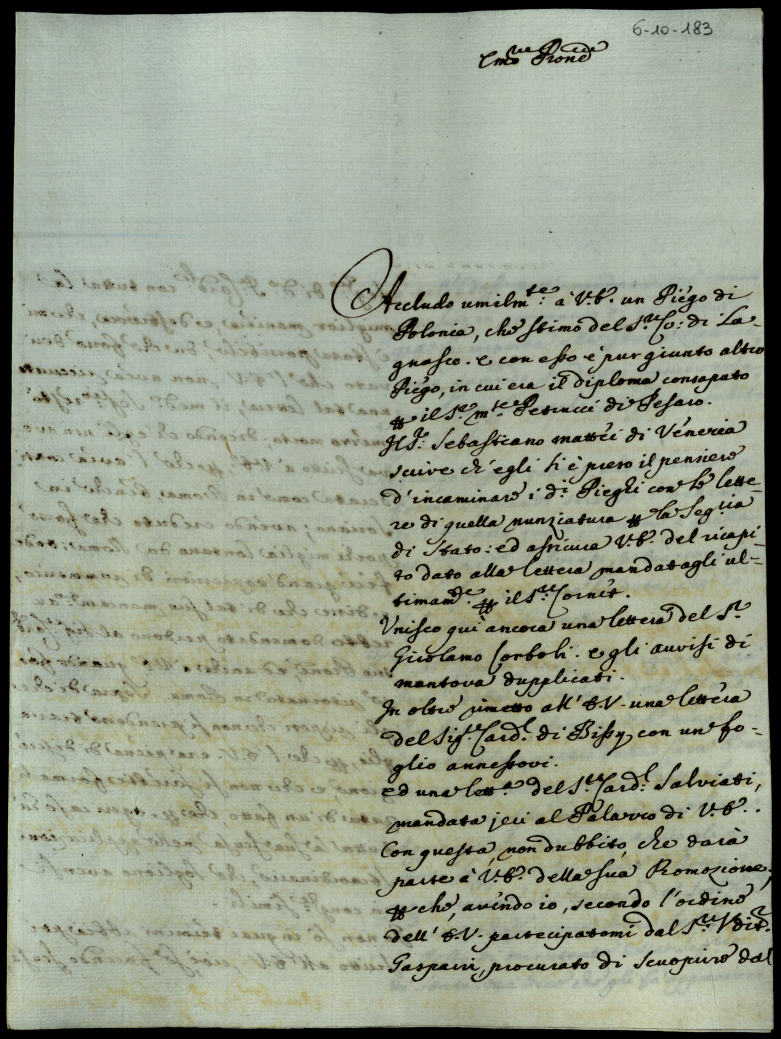 6-10-183
Em̃o Prone
Accludo umilm.te à V.E. un Piégo di
Polonia, che stimo del S.r Co: di La-
gnasco. e con esso è pur giunto altro
Piégo, in cui era il diploma consaputo
il S.r Petrucci di Pesaro.
Il S.r Sebastiano mattéi di Vénezia
scrive ch'egli si è preso il pensiere
d'incaminare i d.i Pieghi con le lette-
re di quella nunziatura la Seg.ria
di Stato: ed assicura V.E. del ricapi-
to dato alla lettera mandatagli ul-
timam.te il S.r Cornér.
Vnisco quì ancora una lettera del S.r
Girolamo Corboli. e gli avvisi di
mantova dupplicati.
In oltre rimetto all' E.V. una lettera
del Sig.r Card.l di Bissy con un fo-
glio annessovi.
ed una lett.a del S.r Card.l Salviati,
mandata jeri al Palazzo di V.E.
Con questa, non dubbito, che darà
parte à V.E. della sua Promozione;
che, avendo io, secondo l'ordine
dell' E.V. partecipatomi dal S.r Vdit.r
Gaspari, procurato di scuoprire dal